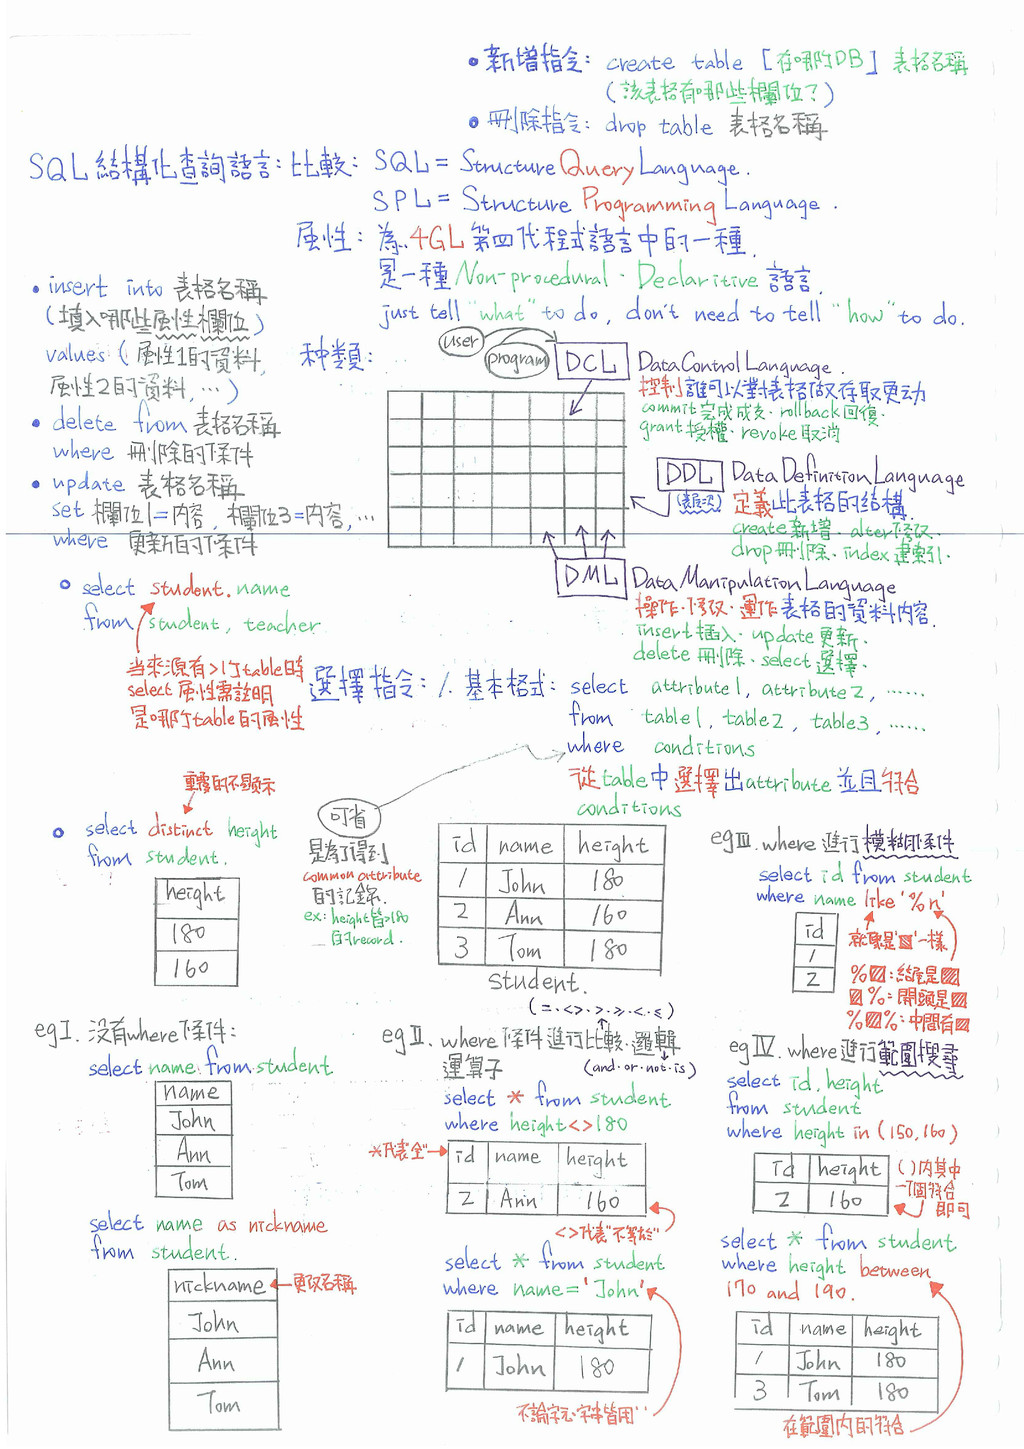 • 新增指令: create table [在哪个DB] 表格名稱
(該表格有哪些欄位?)
• 刪除指令: drop table 表格名稱
SQL 結構化查詢語言: 比較: SQL = Structure Query Language.
SPL = Structure Programming Language.
屬性: 為 4GL 第四代程式語言中的一種.
是一種 Non-procedural · Declaritive 語言.
just tell "what" to do, don't need to tell "how" to do.
• insert into 表格名稱
(填入哪些屬性欄位)
values (屬性1的資料,
屬性2的資料, …)
• delete from 表格名稱
where 刪除的條件
• update 表格名稱
set 欄位1=內容, 欄位3=內容, …
where 更新的條件
种類:
user
program
DCL Data Control Language.
控制誰可以對表格做存取更动
commit 完成成交 · rollback 回復 ·
grant 授權 · revoke 取消
DDL Data Definition Language
定義此表格的結構.
create 新增 · alter 修改 ·
drop 刪除 · index 建索引 ·
DML Data Manipulation Language
操作 · 修改 · 運作表格的資料內容.
insert 插入 · update 更新 ·
delete 刪除 · select 選擇.
◦ select student.name
from student, teacher
當來源有>1个table時
select 屬性需註明
是哪个table的屬性
選擇指令: 1. 基本格式: select attribute1, attribute2, ……
from table1, table2, table3, ……
where conditions
從table中選擇出attribute並且符合
conditions
可省
是為了得到
common attribute
的記錄.
ex: height皆>180
的record.
重複的不顯示
◦ select distinct height
from student.
height
180
160
id name height
1 John 180
2 Ann 160
3 Tom 180
student.
eg III. where 進行模糊條件
select id from student
where name like '%n'
id
1
2
就像是"▨"一樣
%▨: 結尾是▨
▨%: 開頭是▨
%▨%: 中間有▨
eg I. 沒有where條件:
select name from student
name
John
Ann
Tom
select name as nickname
from student.
nickname
更改名稱
John
Ann
Tom
(= · <> · > · ≥ · < · ≤)
eg II. where 條件進行比較 · 邏輯
運算子 (and · or · not · is)
select * from student
where height<>180
*代表"全"
id name height
2 Ann 160
<>代表"不等於"
select * from student
where name='John'
id name height
1 John 180
不論字元字串皆用' '
eg IV. where 進行範圍搜尋
select id, height
from student
where height in (150,160)
id height
2 160
( )內其中
一個符合
即可
select * from student
where height between
170 and 190.
id name height
1 John 180
3 Tom 180
在範圍內的符合